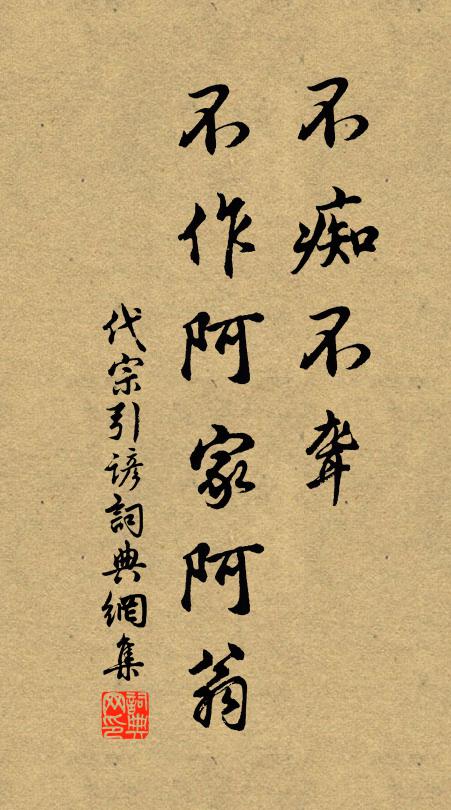 不痴不聋
不作阿家阿翁
代宗引諺詞典網集
詞典
网印